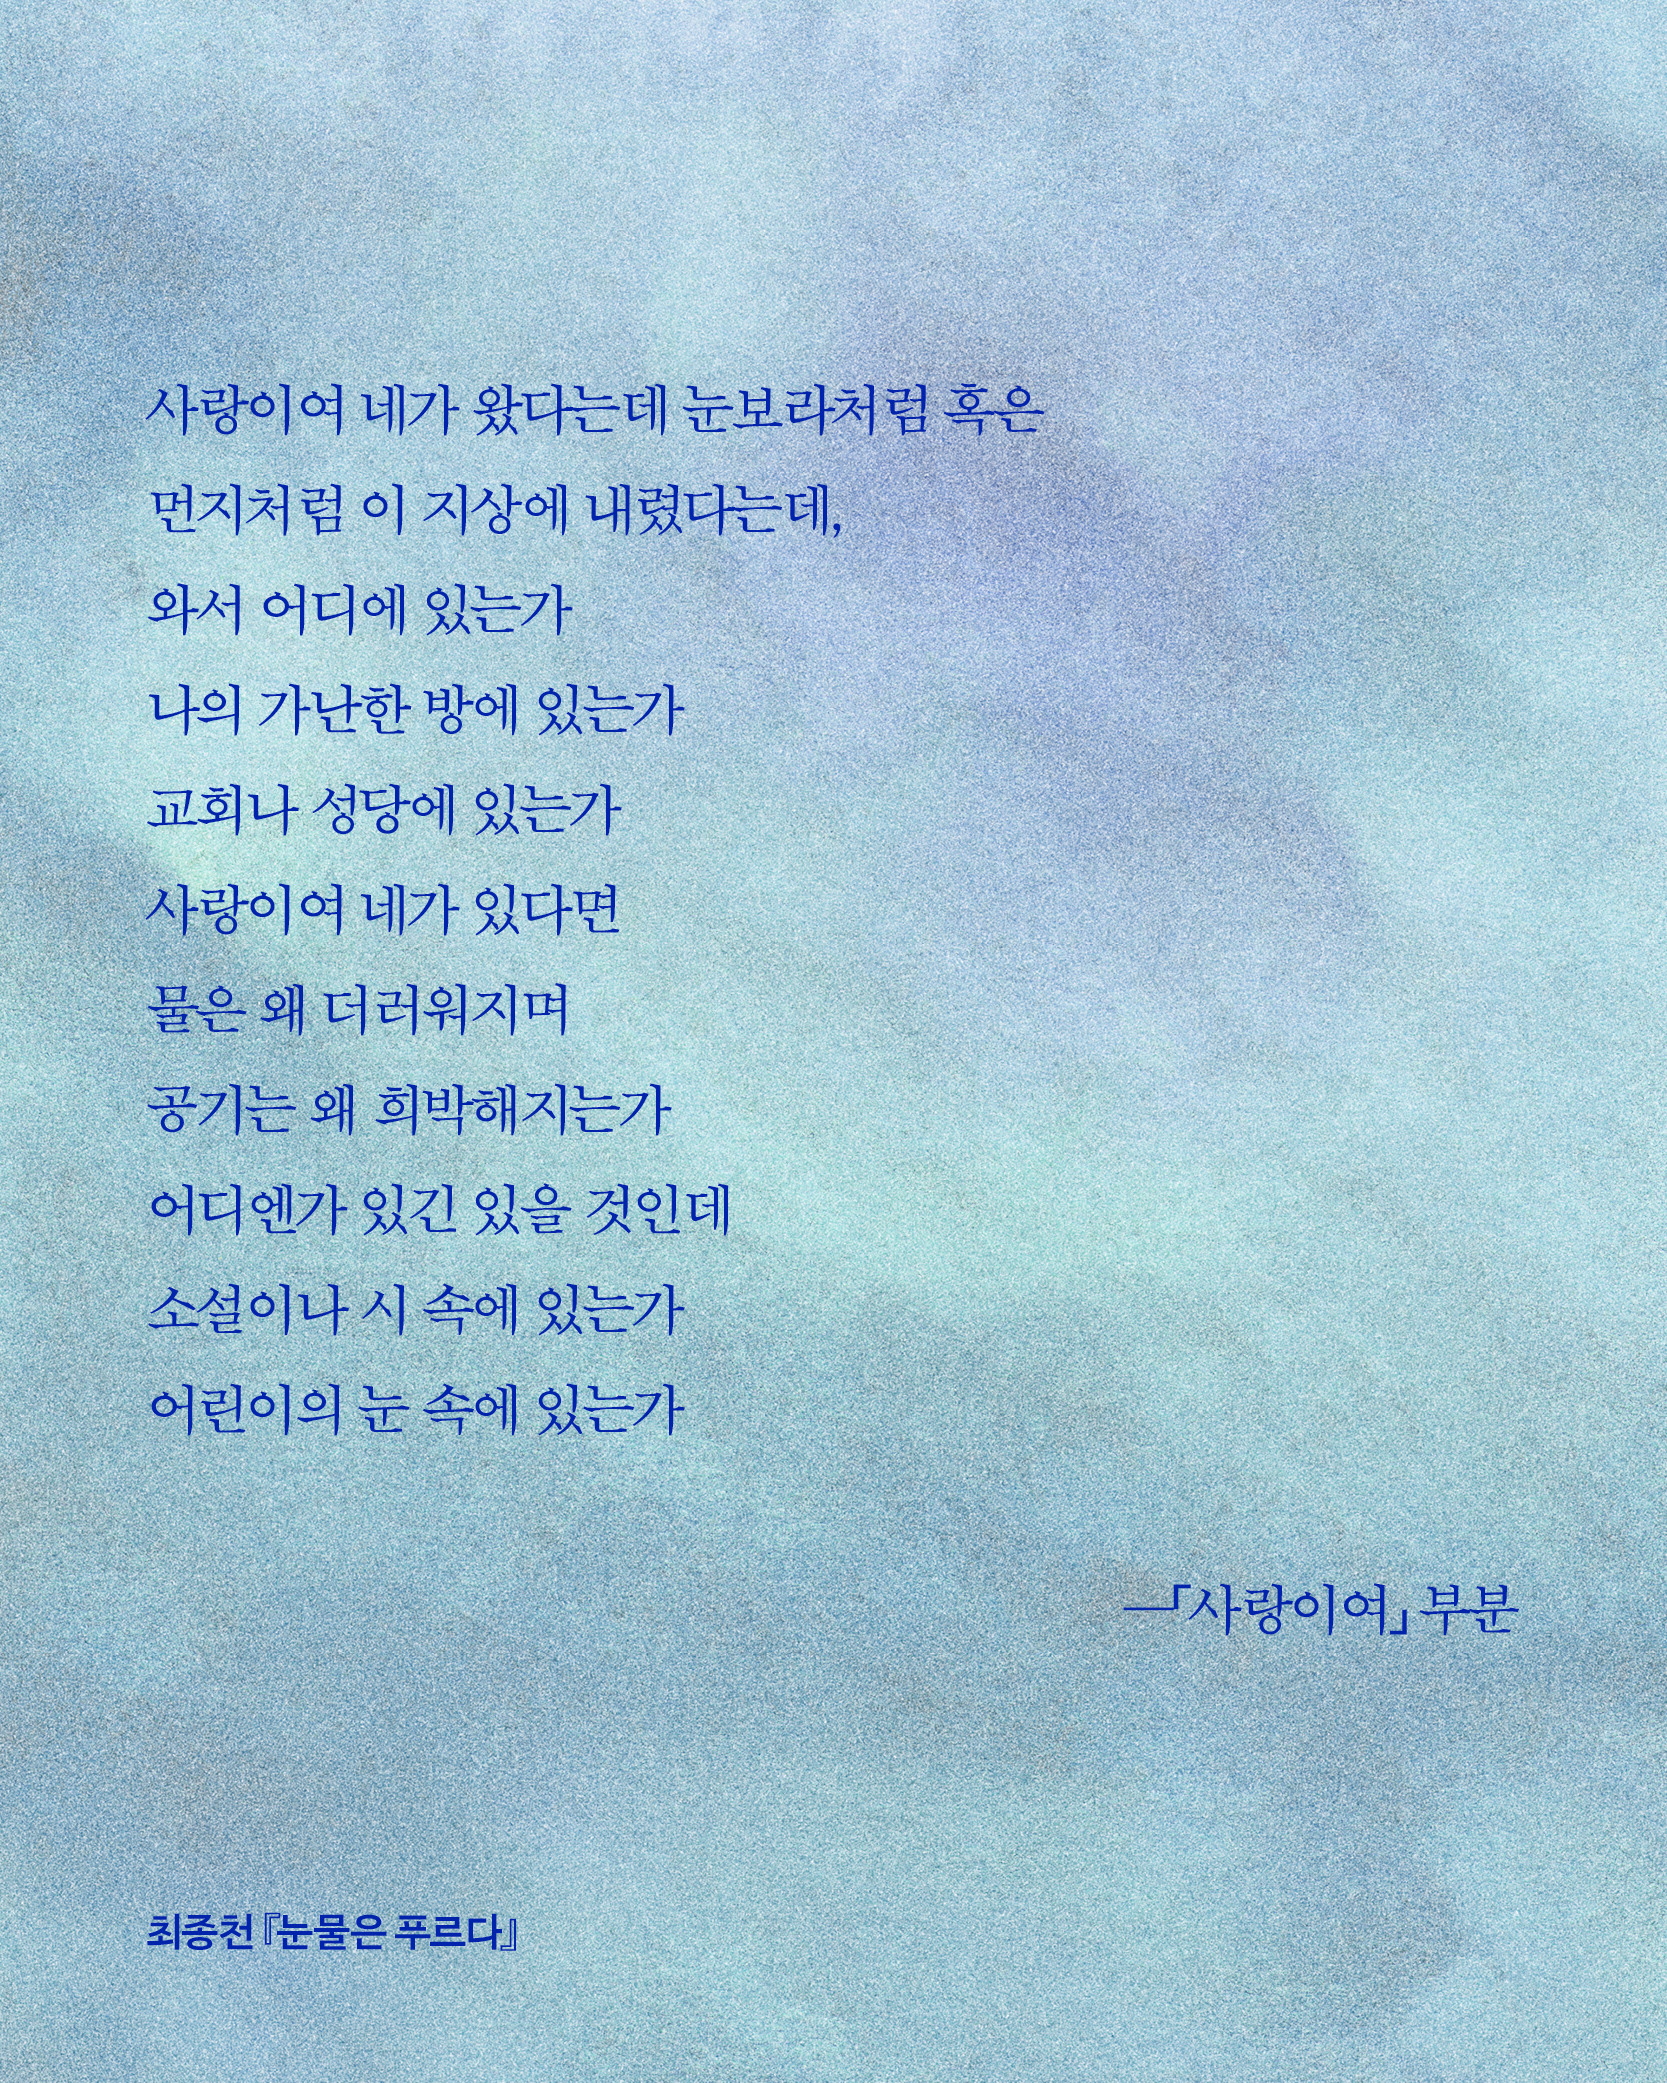 사랑이여 네가 왔다는데 눈보라처럼 혹은
먼지처럼 이 지상에 내렸다는데,
와서 어디에 있는가
나의 가난한 방에 있는가
교회나 성당에 있는가
사랑이여 네가 있다면
물은 왜 더러워지며
공기는 왜 희박해지는가
어디엔가 있긴 있을 것인데
소설이나 시 속에 있는가
어린이의 눈 속에 있는가
―「사랑이여」 부분
최종천 『눈물은 푸르다』